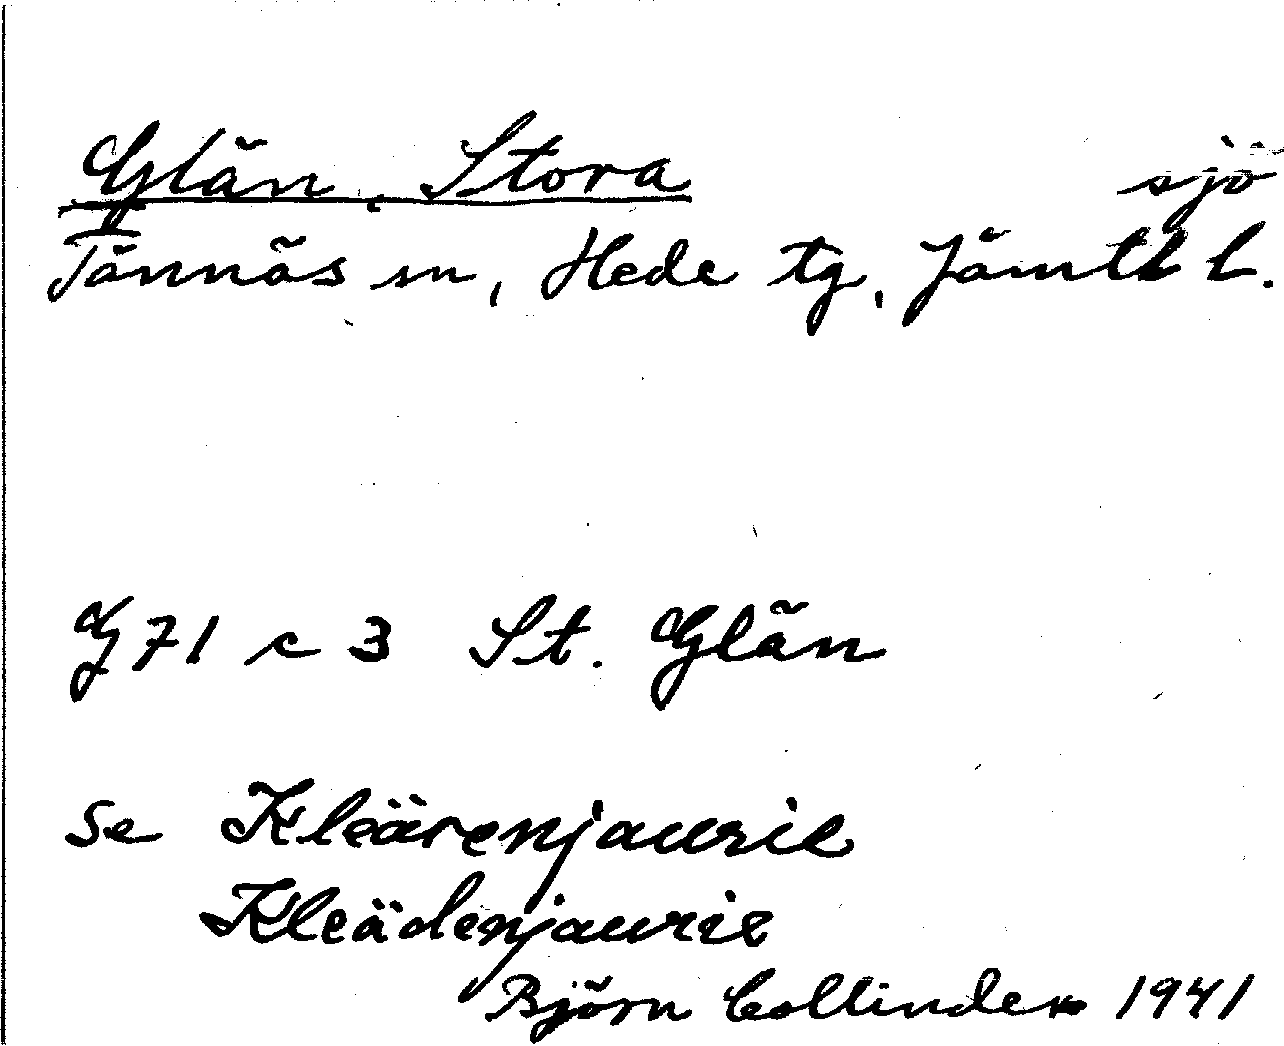 Glän, Stora sjö
Tännäs sn, Hede tg, Jämtl l.
G 71 c 3 St. Glän
se Kleärenjaurie
Kleädenjaurie
Björn Collinder 1941